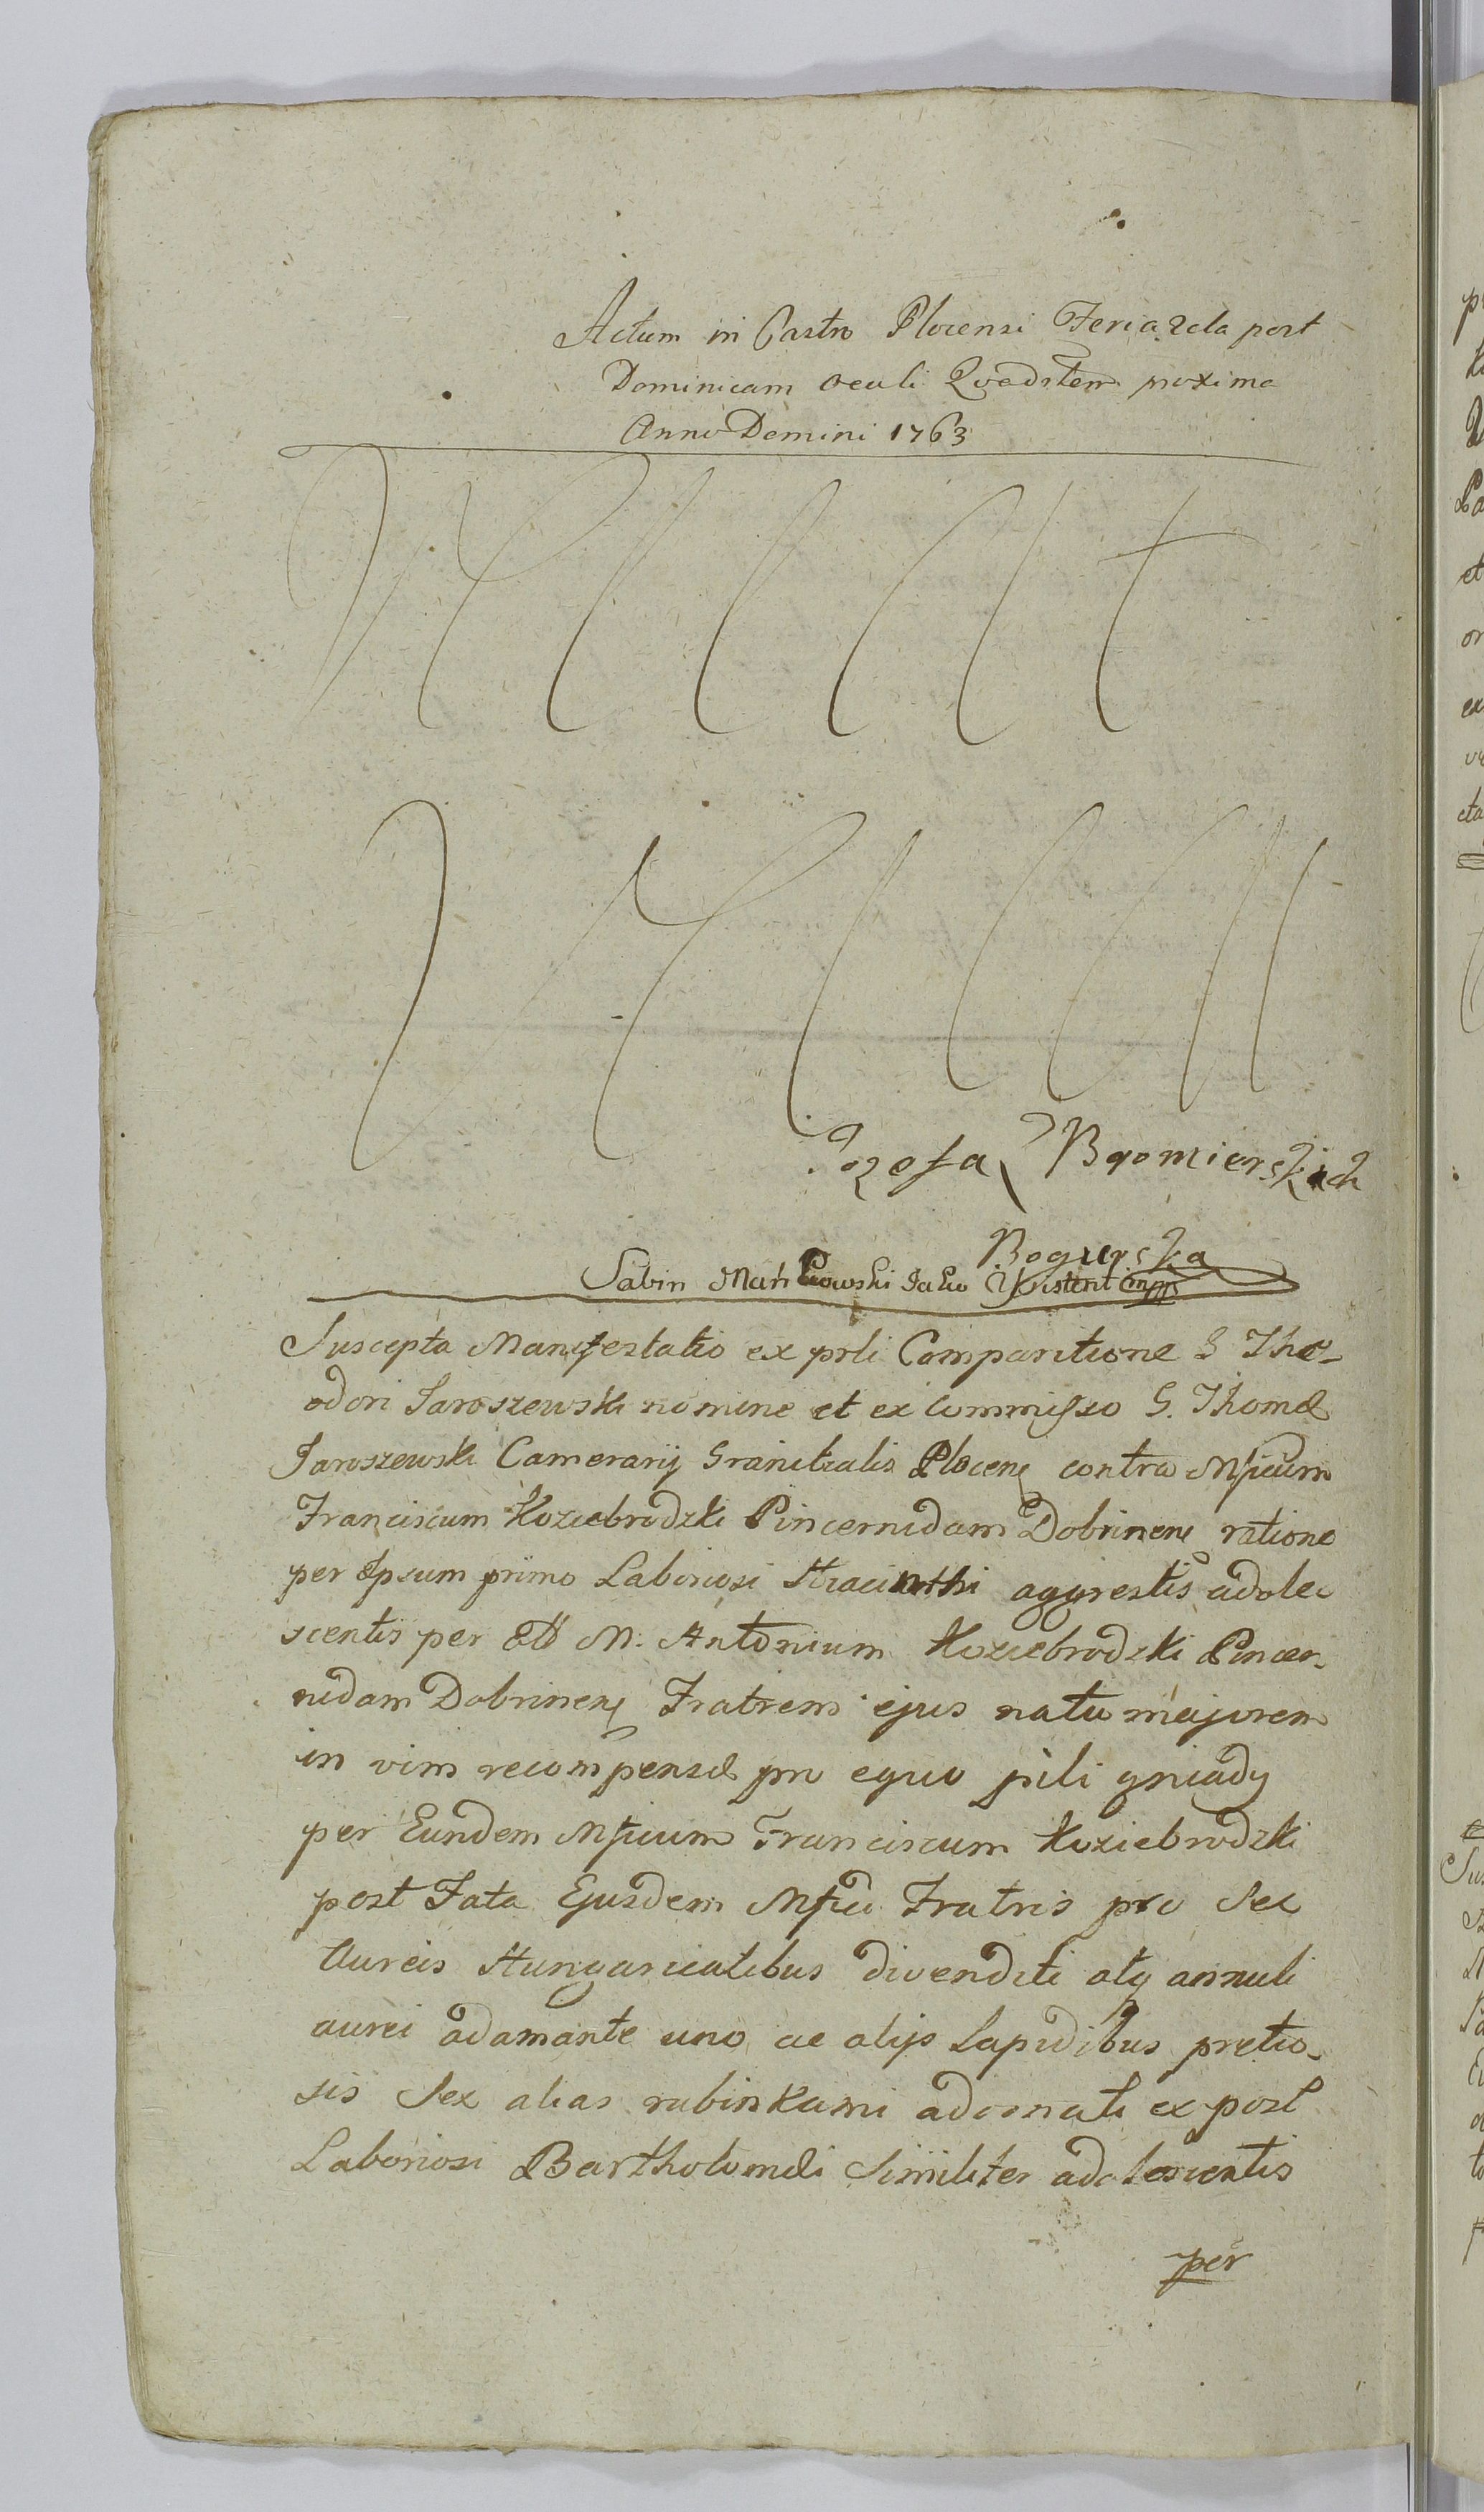 Actum in Castro Plocensi Feria 2da post
Dominicam Oculi Quadrlem proxima
Anno Domini 1763
Jozefa z Bromierskich
Bogurska
Sabin Mańkowski Jako Assistent mpp
Suscepta Manifestatio ex prli Comparitione G The-
odori Jaroszewski nomine et ex Commisso G. Thomæ
Jaroszewski Camerarij Granitialis Plocens contra Mficum
Franciscum Koziebrodzki Pincernidam Dobrinens ratione
per Ipsum primo Laboriosi Hiacinthi aggrestis adole
scentis per M. Antonium Koziebrodzki Pincer-
nidam Dobrinens Fratrem ejus natu majorem
in vim recompensæ pro equo pili gniady
per Eundem Mficum Franciscum Koziebrodzki
post Fata Ejusdem Mfici Fratris pro Sex
Aureis Hungaricalibus divenditi atq annuli
aurei adamante uno ac alijs Lapidibus pretio-
sis Sex alias rubinkami adornati ex post
Laboriosi Bartholomæi Similiter adolescentis
per